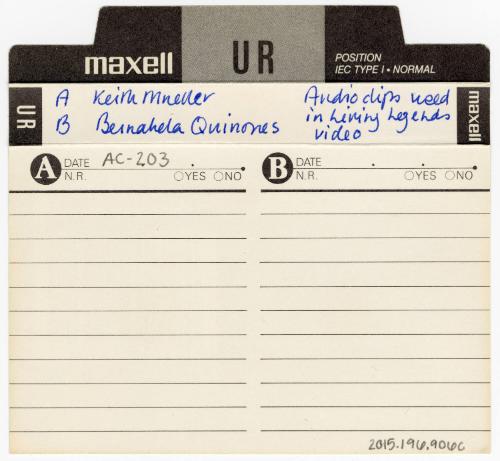 maxell UR POSITION
IEC TYPE I • NORMAL
UR
A Keith Mueller
B Bernabela Quinones
Audio clips used
in Living Legends
video
maxell
A DATE AC-203
N.R. ○YES ○NO
B DATE
N.R. ○YES ○NO
2015.196.906c